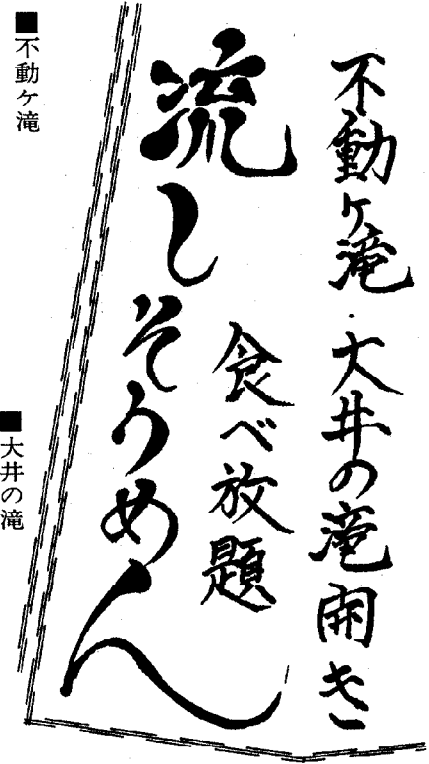 不動ヶ滝・大井の滝開き
食べ放題
流しそうめん
■不動ヶ滝
■大井の滝